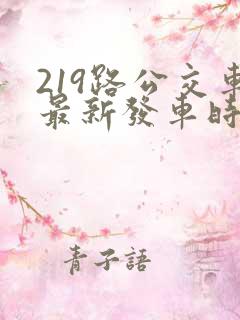 219路公交車
最新發車時
青子語